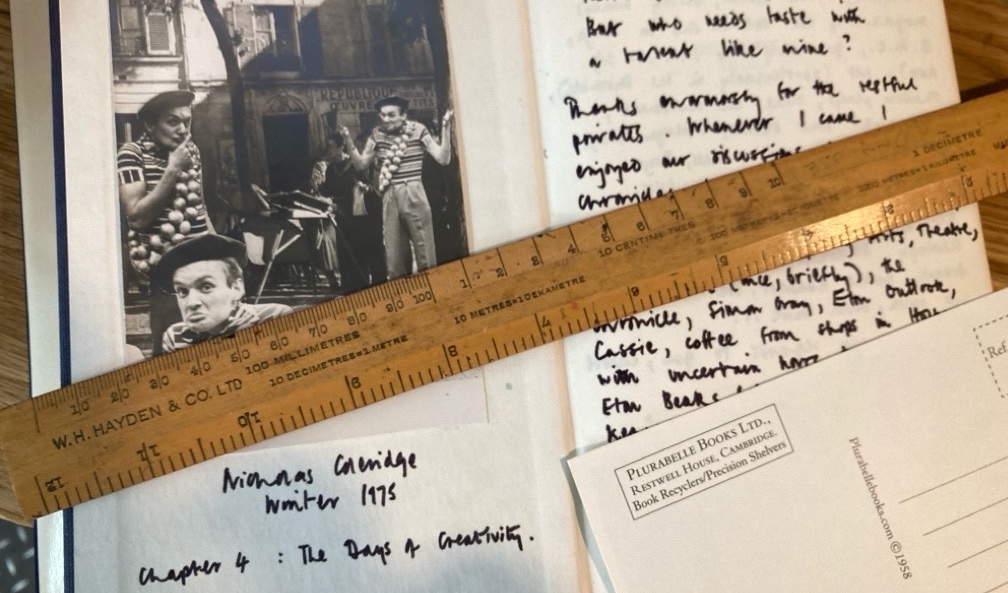 But who needs taste with
a talent like mine?
Thanks enormously for the restful
privates. Whenever I came I
enjoyed our discussions
chronicles
Arts, Theatre,
(once, briefly), the
Chronicle, Simon Gray, Eton Outlook,
Cassie, coffee from shops in
with uncertain
Eton Beaks
REPUBLIQUE
ŒUVRE
10 20 30 40 50 60 70 80 90 100 1 2 3 4 5 6 7 8 9 10
100 MILLIMETRES
10 DECIMETRES=1 METRE
10 METRES=1 DEKAMETRE
10 CENTIMETRES
1 DECIMETRE
W.H. HAYDEN & CO. LTD
12 11 10 9 8
Nicholas Coleridge
Winter 1975
Chapter 4 : The Days of Creativity.
PLURABELLE BOOKS LTD.,
RESTWELL HOUSE, CAMBRIDGE.
Book Recyclers/Precision Shelvers
Plurabellebooks.com ©1958
Ref